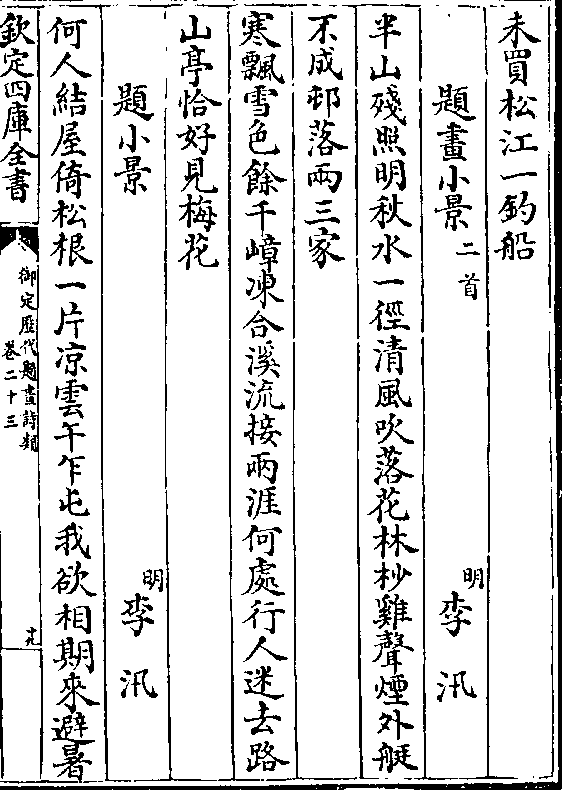 未買松江一釣船
題畫小景二首　明李汛
半山殘照明秋水一徑清風吹落花林杪雞聲煙外艇
不成邨落兩三家
寒飄雪色餘千嶂凍合溪流接兩涯何處行人迷去路
山亭恰好見梅花
題小景　明李汛
何人結屋倚松根一片凉雲午乍屯我欲相期來避暑
欽定四庫全書　御定歷代題畫詩類卷二十三　十九